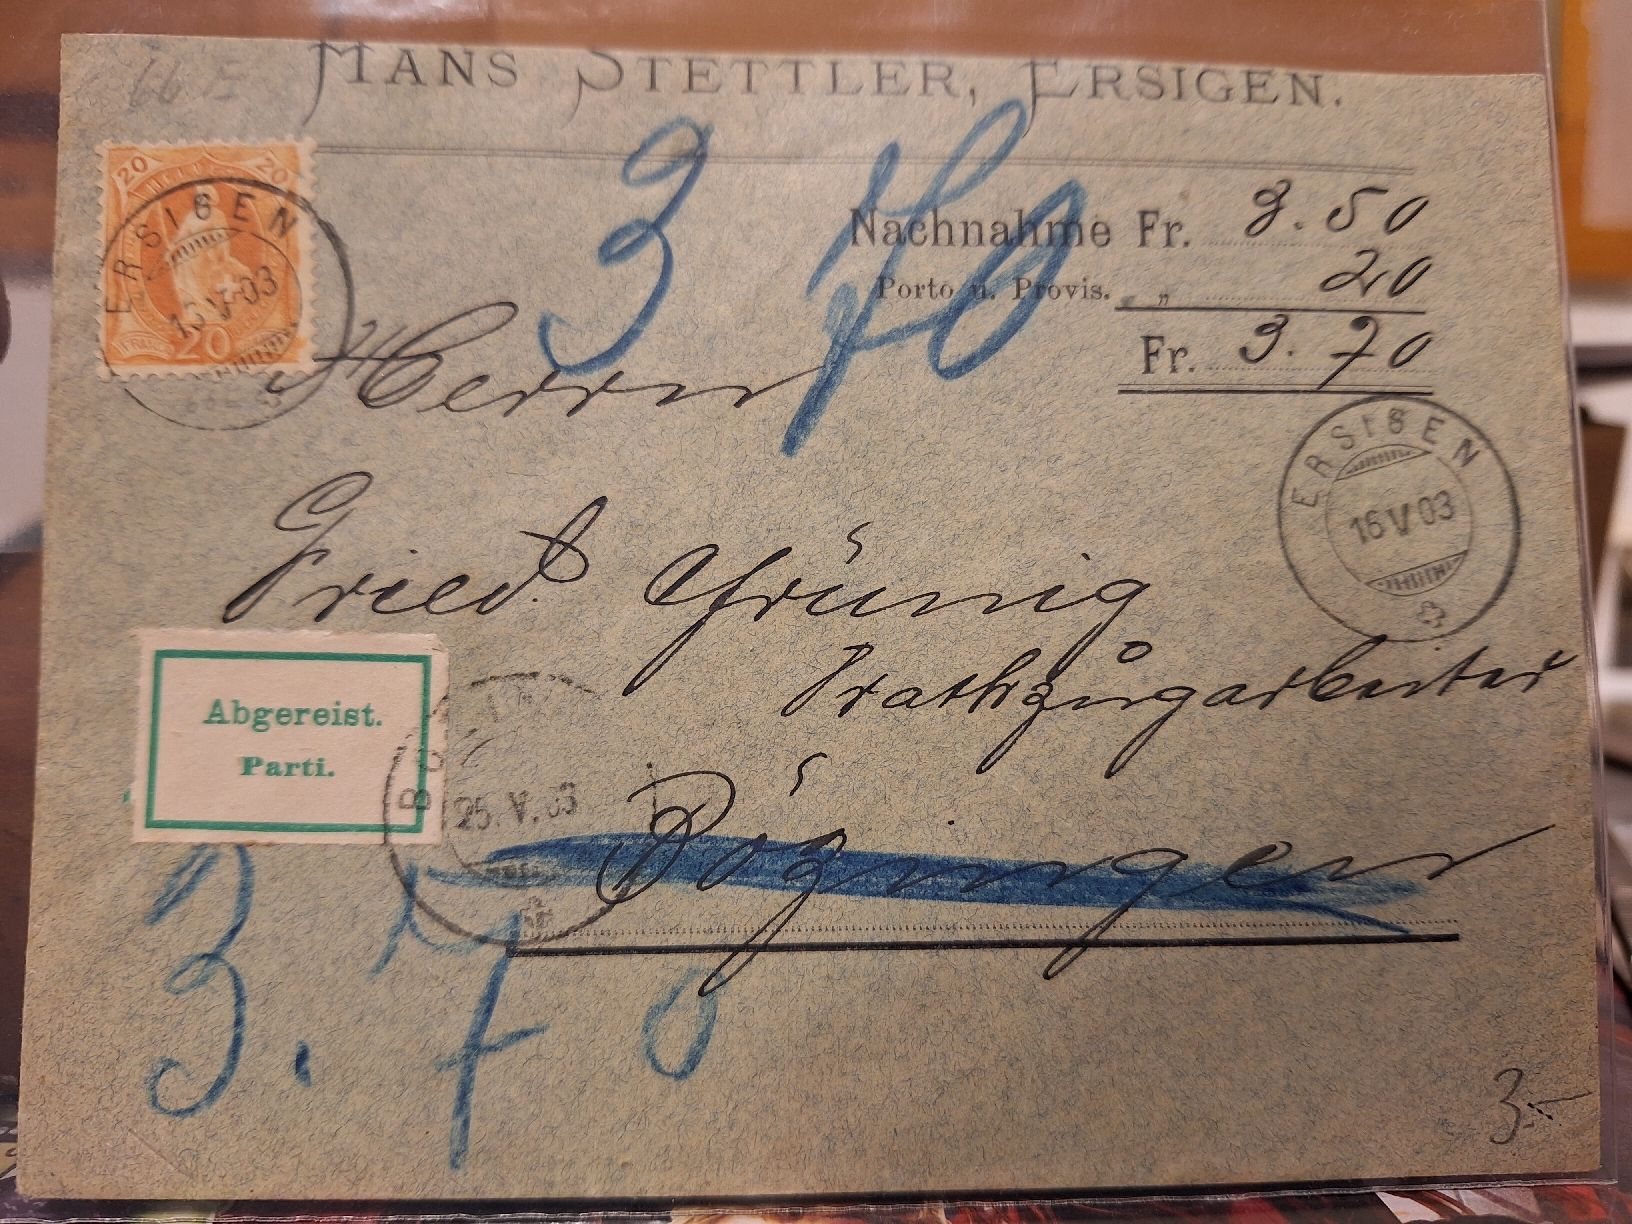 HANS STETTLER, ERSIGEN.
3 70
Nachnahme Fr. 3.50
Porto u. Provis. „ 20
Fr. 3.70
20 20
HELVETIA
FRANCO
20
ERSIGEN
16 V 03
ERSIGEN
16 V 03
Herrn
Fried. Grünig
Drathzugarbeiter
Bözingen
Abgereist.
Parti.
25.V.03
3.70
3.-